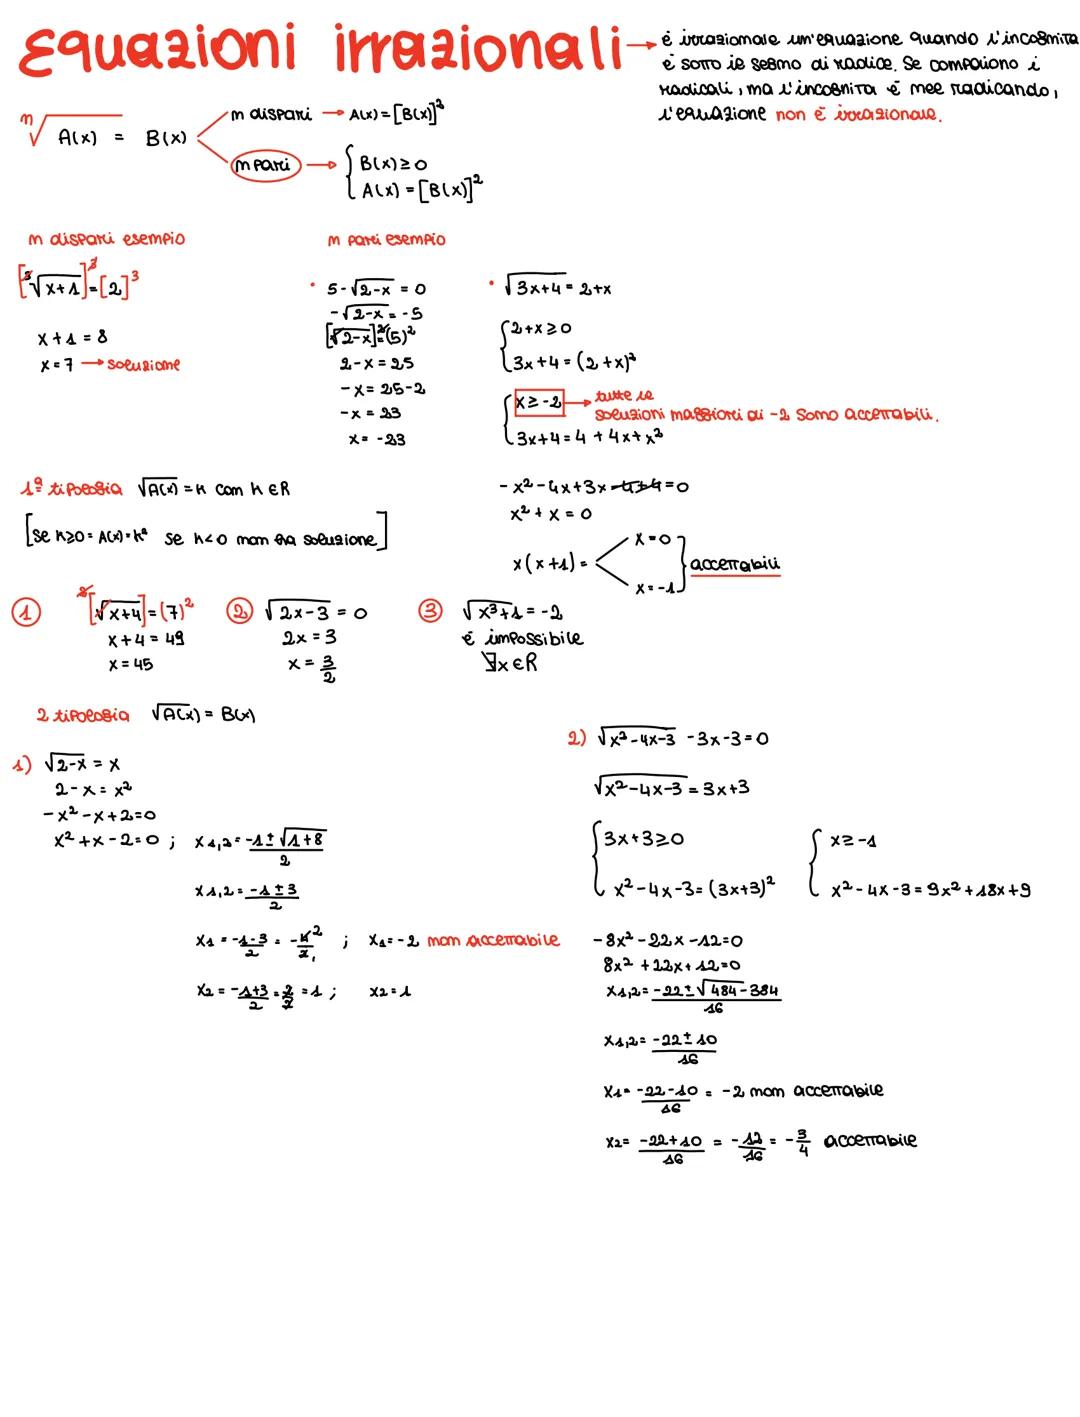 Equazioni irrazionali → è irrazionale un'equazione quando l'incognita
è sotto il segno di radice. Se compaiono i
radicali, ma l'incognita è nel radicando,
l'equazione non è irrazionale.
ⁿ√A(x) = B(x)
n dispari → A(x) = [B(x)]³
n pari → { B(x) ≥ 0
A(x) = [B(x)]²
n dispari esempio
[³√x+1]³ = [2]³
x+1 = 8
x = 7 → soluzione
n pari esempio
• 5-√2-x = 0
-√2-x = -5
[√2-x]² = (5)²
2-x = 25
-x = 25-2
-x = 23
x = -23
• √3x+4 = 2+x
{ 2+x ≥ 0
3x+4 = (2+x)²
{ x ≥ -2 → tutte le
soluzioni maggiori di -2 sono accettabili.
3x+4 = 4 + 4x + x²
-x² - 4x + 3x -4+4 = 0
x² + x = 0
x(x+1) =
x = 0
x = -1
accettabili
1ª tipologia √A(x) = k con k ∈ R
[se k≥0 = A(x) = k² se k<0 non ha soluzione]
① [√x+4]² = (7)²
x+4 = 49
x = 45
② √2x-3 = 0
2x = 3
x = 3/2
③ √x³+1 = -2
è impossibile
∄x ∈ R
2 tipologia √A(x) = B(x)
1) √2-x = x
2-x = x²
-x² - x + 2 = 0
x² + x - 2 = 0 ; x1,2 = -1 ± √1+8 / 2
x1,2 = -1 ± 3 / 2
x1 = -1-3 / 2 = -4² / 2₁ ; x1 = -2 non accettabile
x2 = -1+3 / 2 = 2/2 = 1 ; x2 = 1
2) √x²-4x-3 - 3x - 3 = 0
√x²-4x-3 = 3x+3
{ 3x+3 ≥ 0
x² - 4x - 3 = (3x+3)²
{ x ≥ -1
x² - 4x - 3 = 9x² + 18x + 9
-8x² - 22x - 12 = 0
8x² + 22x + 12 = 0
x1,2 = -22 ± √484 - 384 / 16
x1,2 = -22 ± 10 / 16
x1 = -22 - 10 / 16 = -2 non accettabile
x2 = -22 + 10 / 16 = -12/16 = -3/4 accettabile